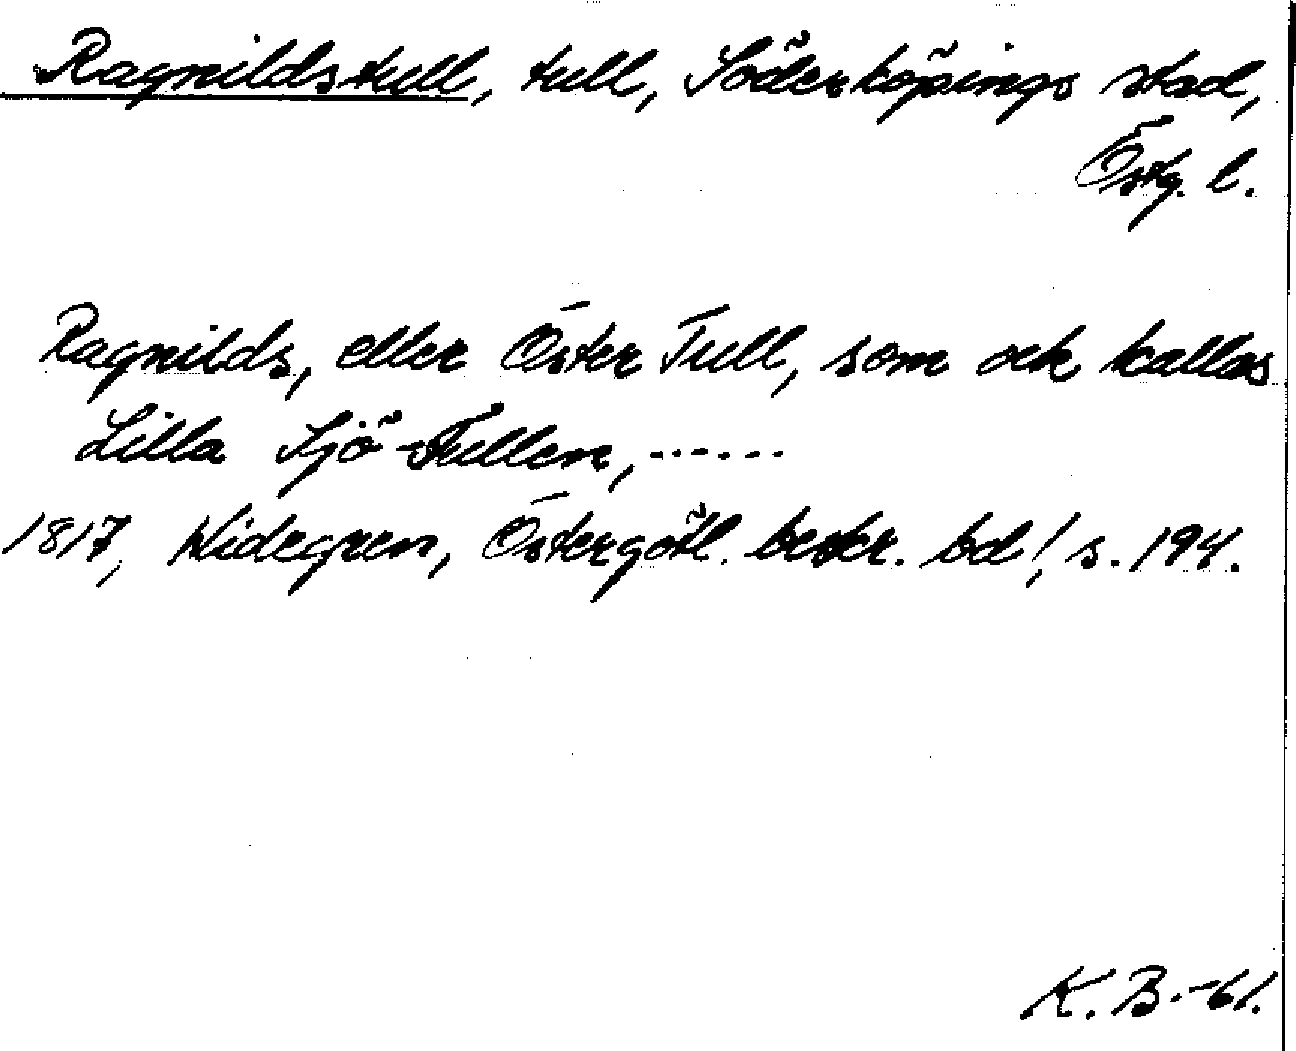 Ragnildstull, tull, Söderköpings stad,
Östg. l.
Ragnilds, eller Öster Tull, som ock kallas
Lilla Sjö-Tullen, ......
1817, Widegren, Östergötl. beskr. bd 1, s. 194.
K. B. -61.